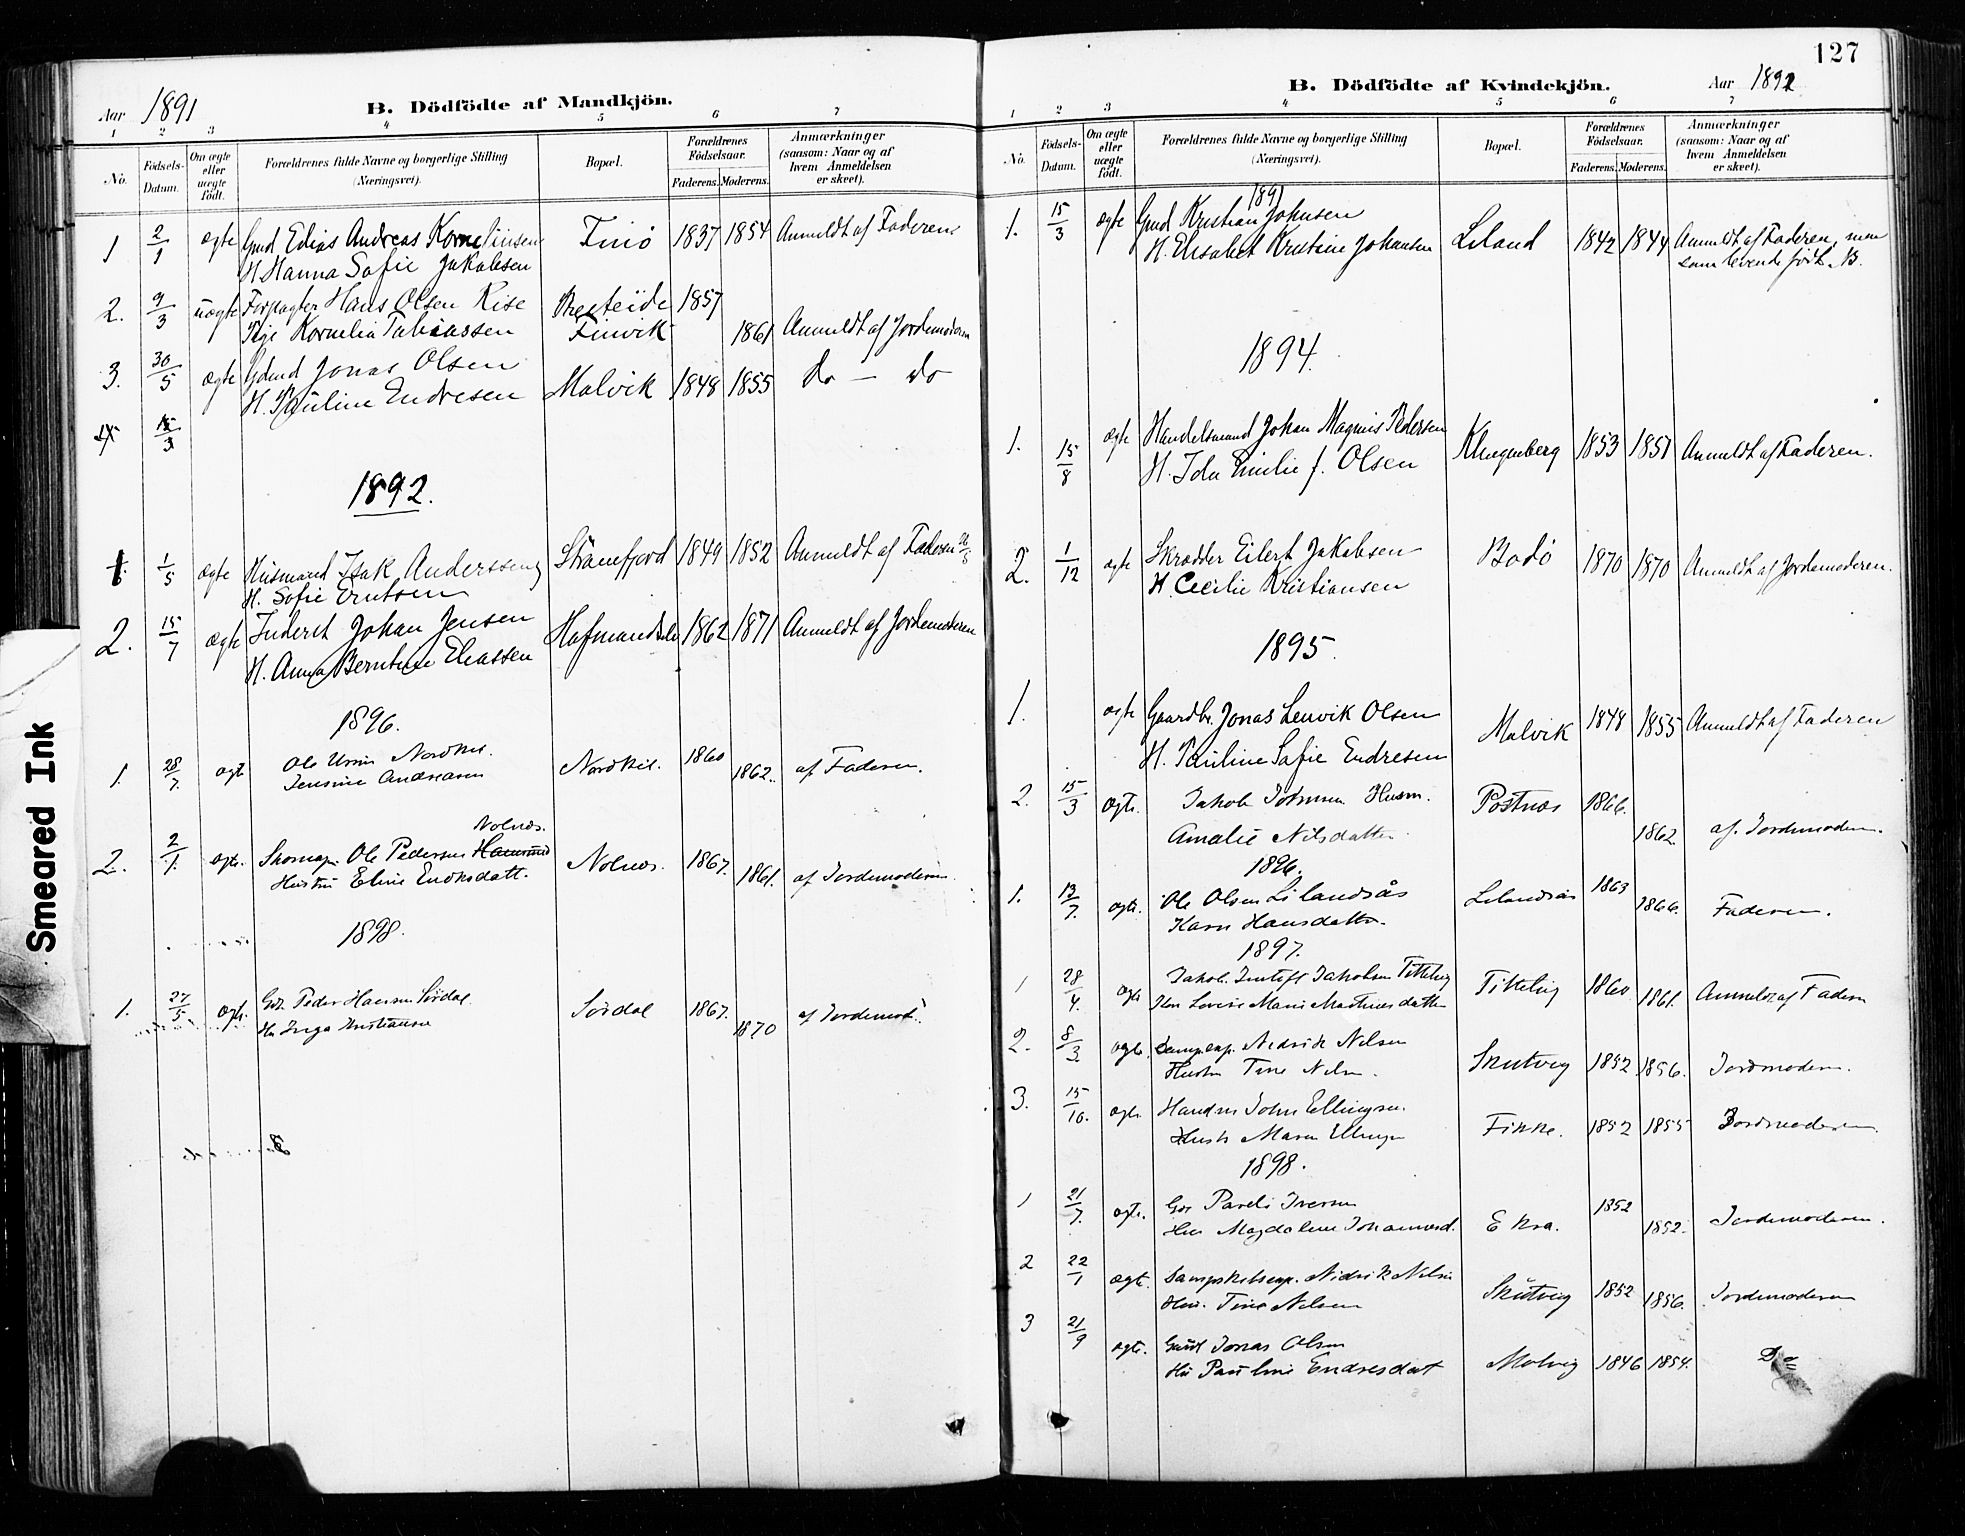 Aar 1891
B. Dödfödte af Mandkjön.
1 2 3 4 5 6 7
No.
Födsels-Datum.
Om ægte eller uægte födt.
Forældrenes fulde Navne og borgerlige Stilling (Næringsvei).
Bopæl.
Forældrenes Födselsaar.
Faderens. Moderens.
Anmærkninger (saasom: Naar og af hvem Anmeldelsen er skeet).
1 2/1 ægte Gmd Edias Andreas Korneliussen Finö 1837 1854 Anmeldt af Faderen
H. Hanna Sofie Jakobsen
2. 9/3 uægte Forpagter Hans Olsen Rise Presteide 1857
Pige Kornelia Tobiassen Finvik 1861 Anmeldt af Jordemoderen
3. 30/5 ægte Gdmd Jonas Olsen
H. Pauline Endresen Malvik 1848 1855 do — do
1892.
1. 1/5 ægte Husmand Isak Anderssen Stranefjord 1849 1852 Anmeldt af Faderen
H. Sofie Erntsen
2. 15/7 ægte Inderst Johan Jensen Hofmandsli 1862 1871 Anmeldt af Jordemoderen
H. Anna Berntine Eliassen
1896.
1. 28/7 ægte Ole Nordkil. Nordkil. 1860 1862. af Faderen.
Jensine Andreasen
Nolnæs.
2. 2/1. ægte. Skomag. Ole Pedersen Nolnæs. 1867. 1861. af Jordemoderen.
Hustru Eline Enoksdatt.
1898.
1. 27/5 ægte. Peder Hansen Sördal. Sördal 1867. 1870 af Jordemod.
Hu Inga Kristiansen
Smeared Ink
127
B. Dödfödte af Kvindekjön.
Aar 1892
1 2 3 4 5 6 7
No.
Födsels-Datum.
Om ægte eller uægte födt.
Forældrenes fulde Navne og borgerlige Stilling (Næringsvei).
Bopæl.
Forældrenes Födselsaar.
Faderens. Moderens.
Anmærkninger (saasom: Naar og af hvem Anmeldelsen er skeet).
1891
1. 15/3 ægte Gmd Kristian Johnsen
H. Elisabet Kristine Johansen Leland 1842 1844 Anmeldt af Faderen, men
som levende født. NB.
1894.
1. 15/8 ægte Handelsmand Johan Magnus Pedersen Klingenberg 1853 1851 Anmeldt af Faderen.
H. Ida Emilie f. Olsen
2. 1/12 ægte Skrædder Eilert Jakobsen Bodö 1870 1870 Anmeldt af Jordemoderen.
H. Cecilie Kristiansen
1895.
1. ægte Gaardbr. Jonas Lenvik Olsen Malvik 1848 1855 Anmeldt af Faderen
H. Pauline Sofie Endresen
2. 15/3 ægte. Jakob Husm. Postnæs 1866.
Amalie Nilsdatter 1862. af Jordemoderen.
1896.
1. 13/7. ægte. Ole Olsen Lilandsås Lilandsås 1863 1866. Faderen.
Karn Hansdatter.
1897.
1 28/4. ægte Jakob Jakobsen Tittelvig Tittelvig 1860 1861. Anmeldt af Faderen
Hu Lovise Marie Martinusdatter
2. 8/3 ægte. Dampexp. Nidrik Nilsen
Hustru Tine Nilsen. Skutvig 1852 1856. Jordmoderen.
3. 15/10. ægte. Handm John Ellingsen.
Hustr. Maren Finne. 1852 1855 Jordmoderen.
1898.
1 21/7. ægte. Pareli Iversen 1852
Hu Magdalene Johannesd. Ekra. 1852. Jordemoderen.
2 22/1 ægte. Dampskibsexp. Nidrik Nilsen
Hu. Tine Nilsen Skutvig 1852 1856. Jordemoderen
3 21/9 ægte. Jonas Olsen
Hu Pauline Endresdat Molvig 1846 1854. Do